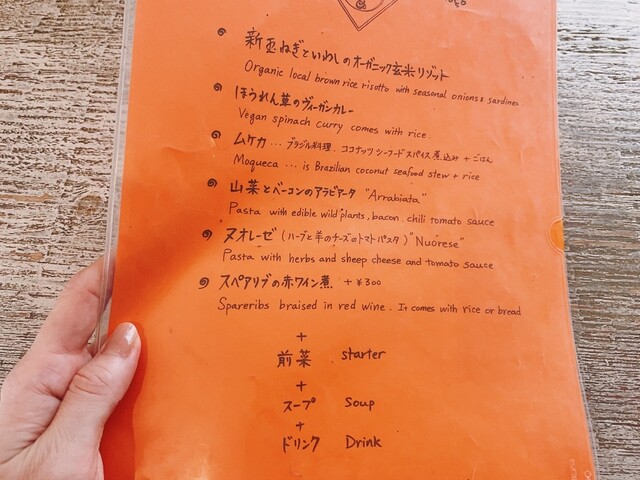 新玉ねぎといわしのオーガニック玄米リゾット
Organic local brown rice risotto with seasonal onions & sardines
ほうれん草のヴィーガンカレー
Vegan spinach curry comes with rice.
ムケカ ... ブラジル料理. ココナッツシーフードスパイス煮込み + ごはん
Moqueca ... is Brazilian coconut seafood stew + rice
山菜とベーコンのアラビアータ "Arrabiata"
Pasta with edible wild plants, bacon. chili tomato sauce
ヌオレーゼ (ハーブと羊のチーズのトマトパスタ) "Nuorese"
Pasta with herbs and sheep cheese and tomato sauce
スペアリブの赤ワイン煮 + ¥300
Spareribs braised in red wine. It comes with rice or bread
+
前菜 starter
+
スープ Soup
+
ドリンク Drink